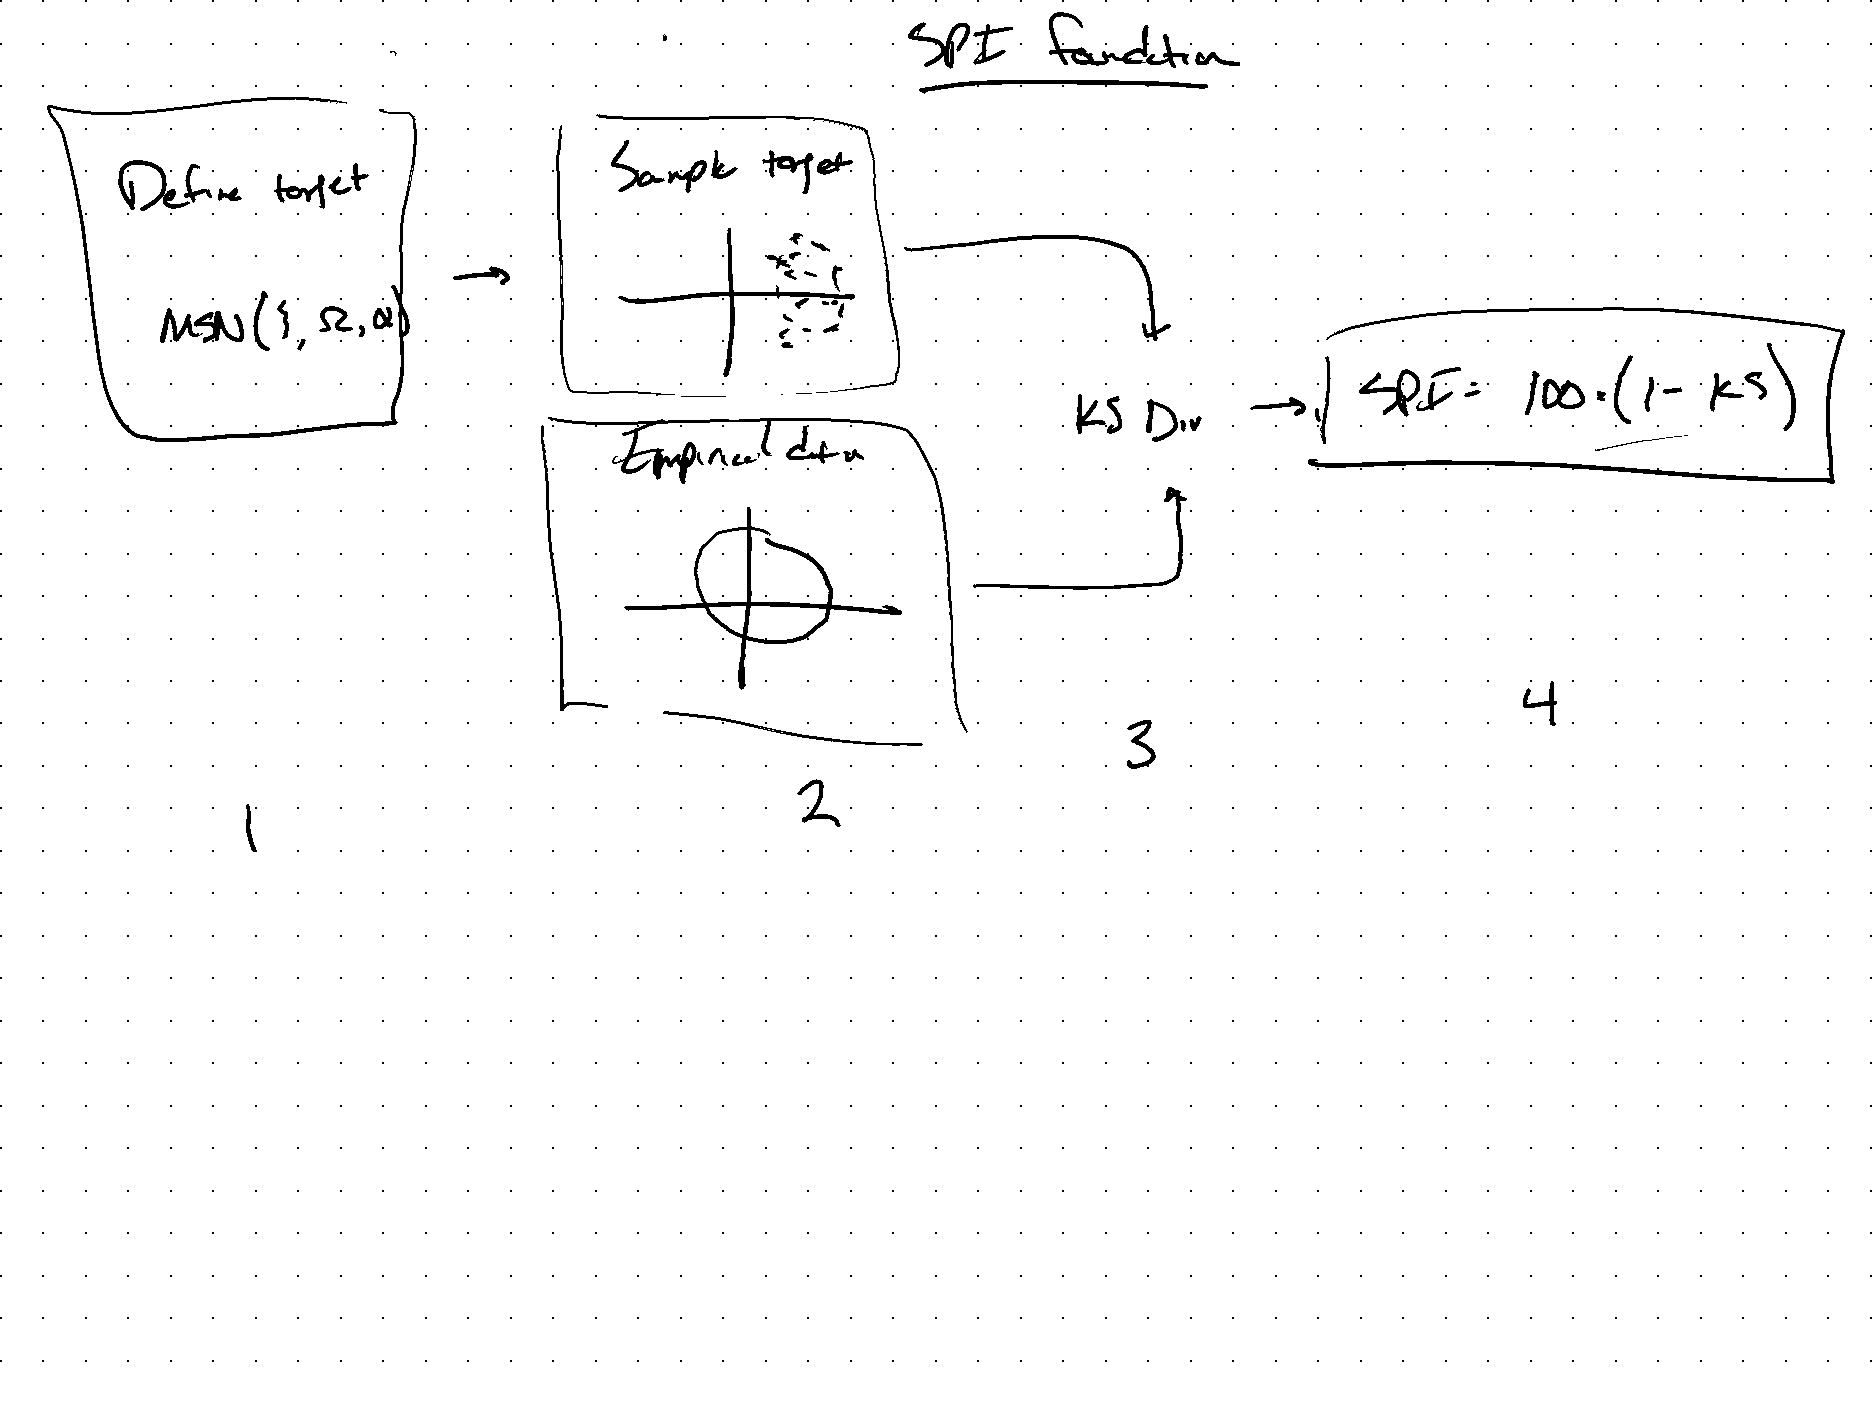 SPI foundation
Define target
MSN(ξ, Ω, α)
Sample target
Empirical data
KS Div
SPI = 100·(1 - KS)
1
2
3
4